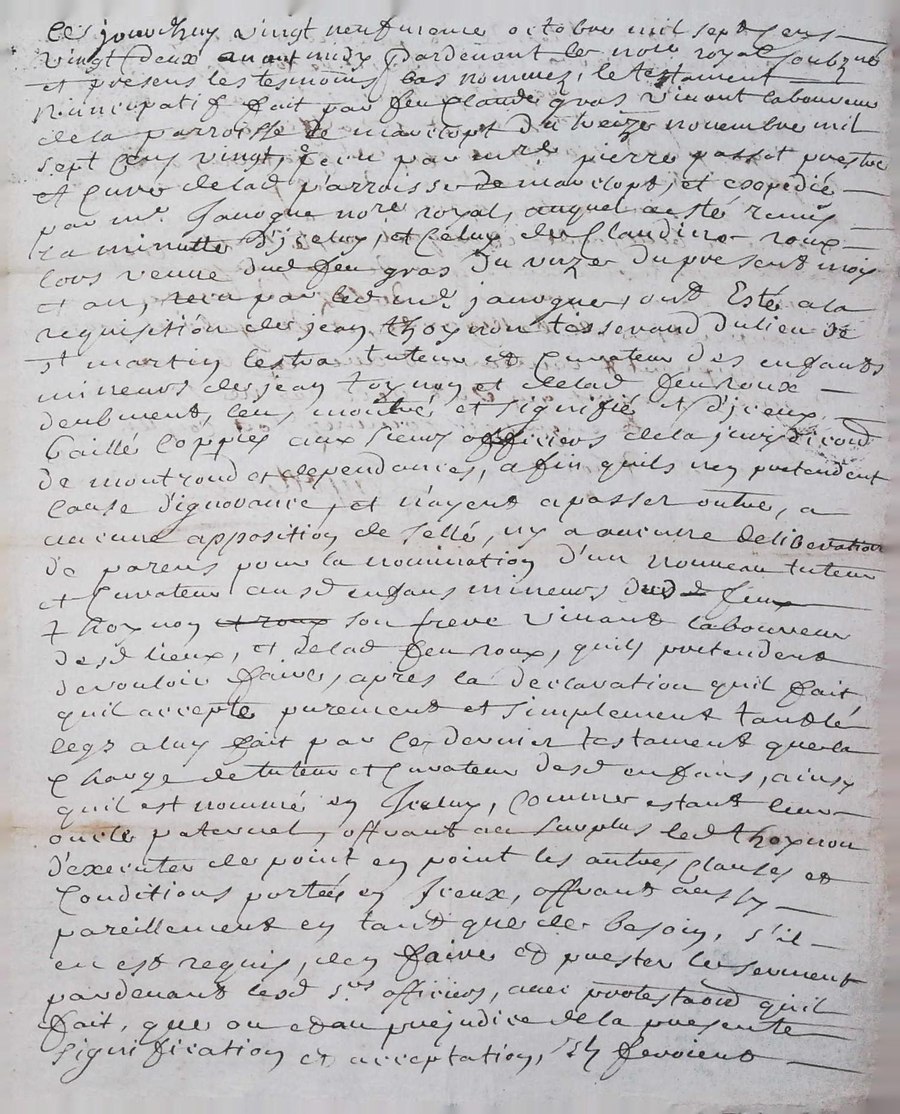 Cejourdhuy vingt neufuieme octobre mil sept cens
vingt deux auant midy pardeuant le nore royal soubzné
et presens les tesmoins bas nommez, le testament
nuncupatif fait par feu Claude gras viuant laboureur
de la parroisse de marclopt du treize novembre mil
sept cens vingt, receu par mre pierre passot prestre
et curé de lad parroisse de marclopt, et expedié
par me Janogue nore royal, auquel a esté remis
la minutte d'iceluy, et celuy de Claudine roux
lors veuue dud feu gras du unze du present mois
et an, receu par led me janogue, ont Esté a la
requisition de jean thoynon tisserand du lieu de
st martin lestra tuteur et curateur des enfants
mineurs de jean toynon et de lad feu roux
deubment, leu, montré et signifié et d'iceux
baillé coppies aux sieurs officiers de la jurisdicond
de montrond et dependances, afin quils n'en pretendent
cause d'ignorance, et n'ayent a passer outre, a
aucune apposition de sellé, ny a aucune deliberation
de parens pour la nomination d'un nouveau tuteur
et curateur ausd enfans mineurs dud feu
thoynon et roux son frere viuant laboureur
desd lieux, et de lad feu roux, quils pretendent
de vouloir faire, après la declaration quil fait
quil accepte purement et simplement tant le
legz a luy fait par ce dernier testament que la
charge de tuteur et curateur desd enfans, ainsy
quil est nommé en Iceluy, comme estant leur
oncle paternel, offrant au surplus led thoynon
d'executer de point en point les autres clauses et
conditions portées en Iceux, offrant aussy
pareillement en tant que de besoin, s'il
en est requis, d'en faire et prester le serment
pardeuant lesd srs officiers, auec protestaond quil
fait, que ou et au prejudice de la presente
signification et acceptation, Ils feroient